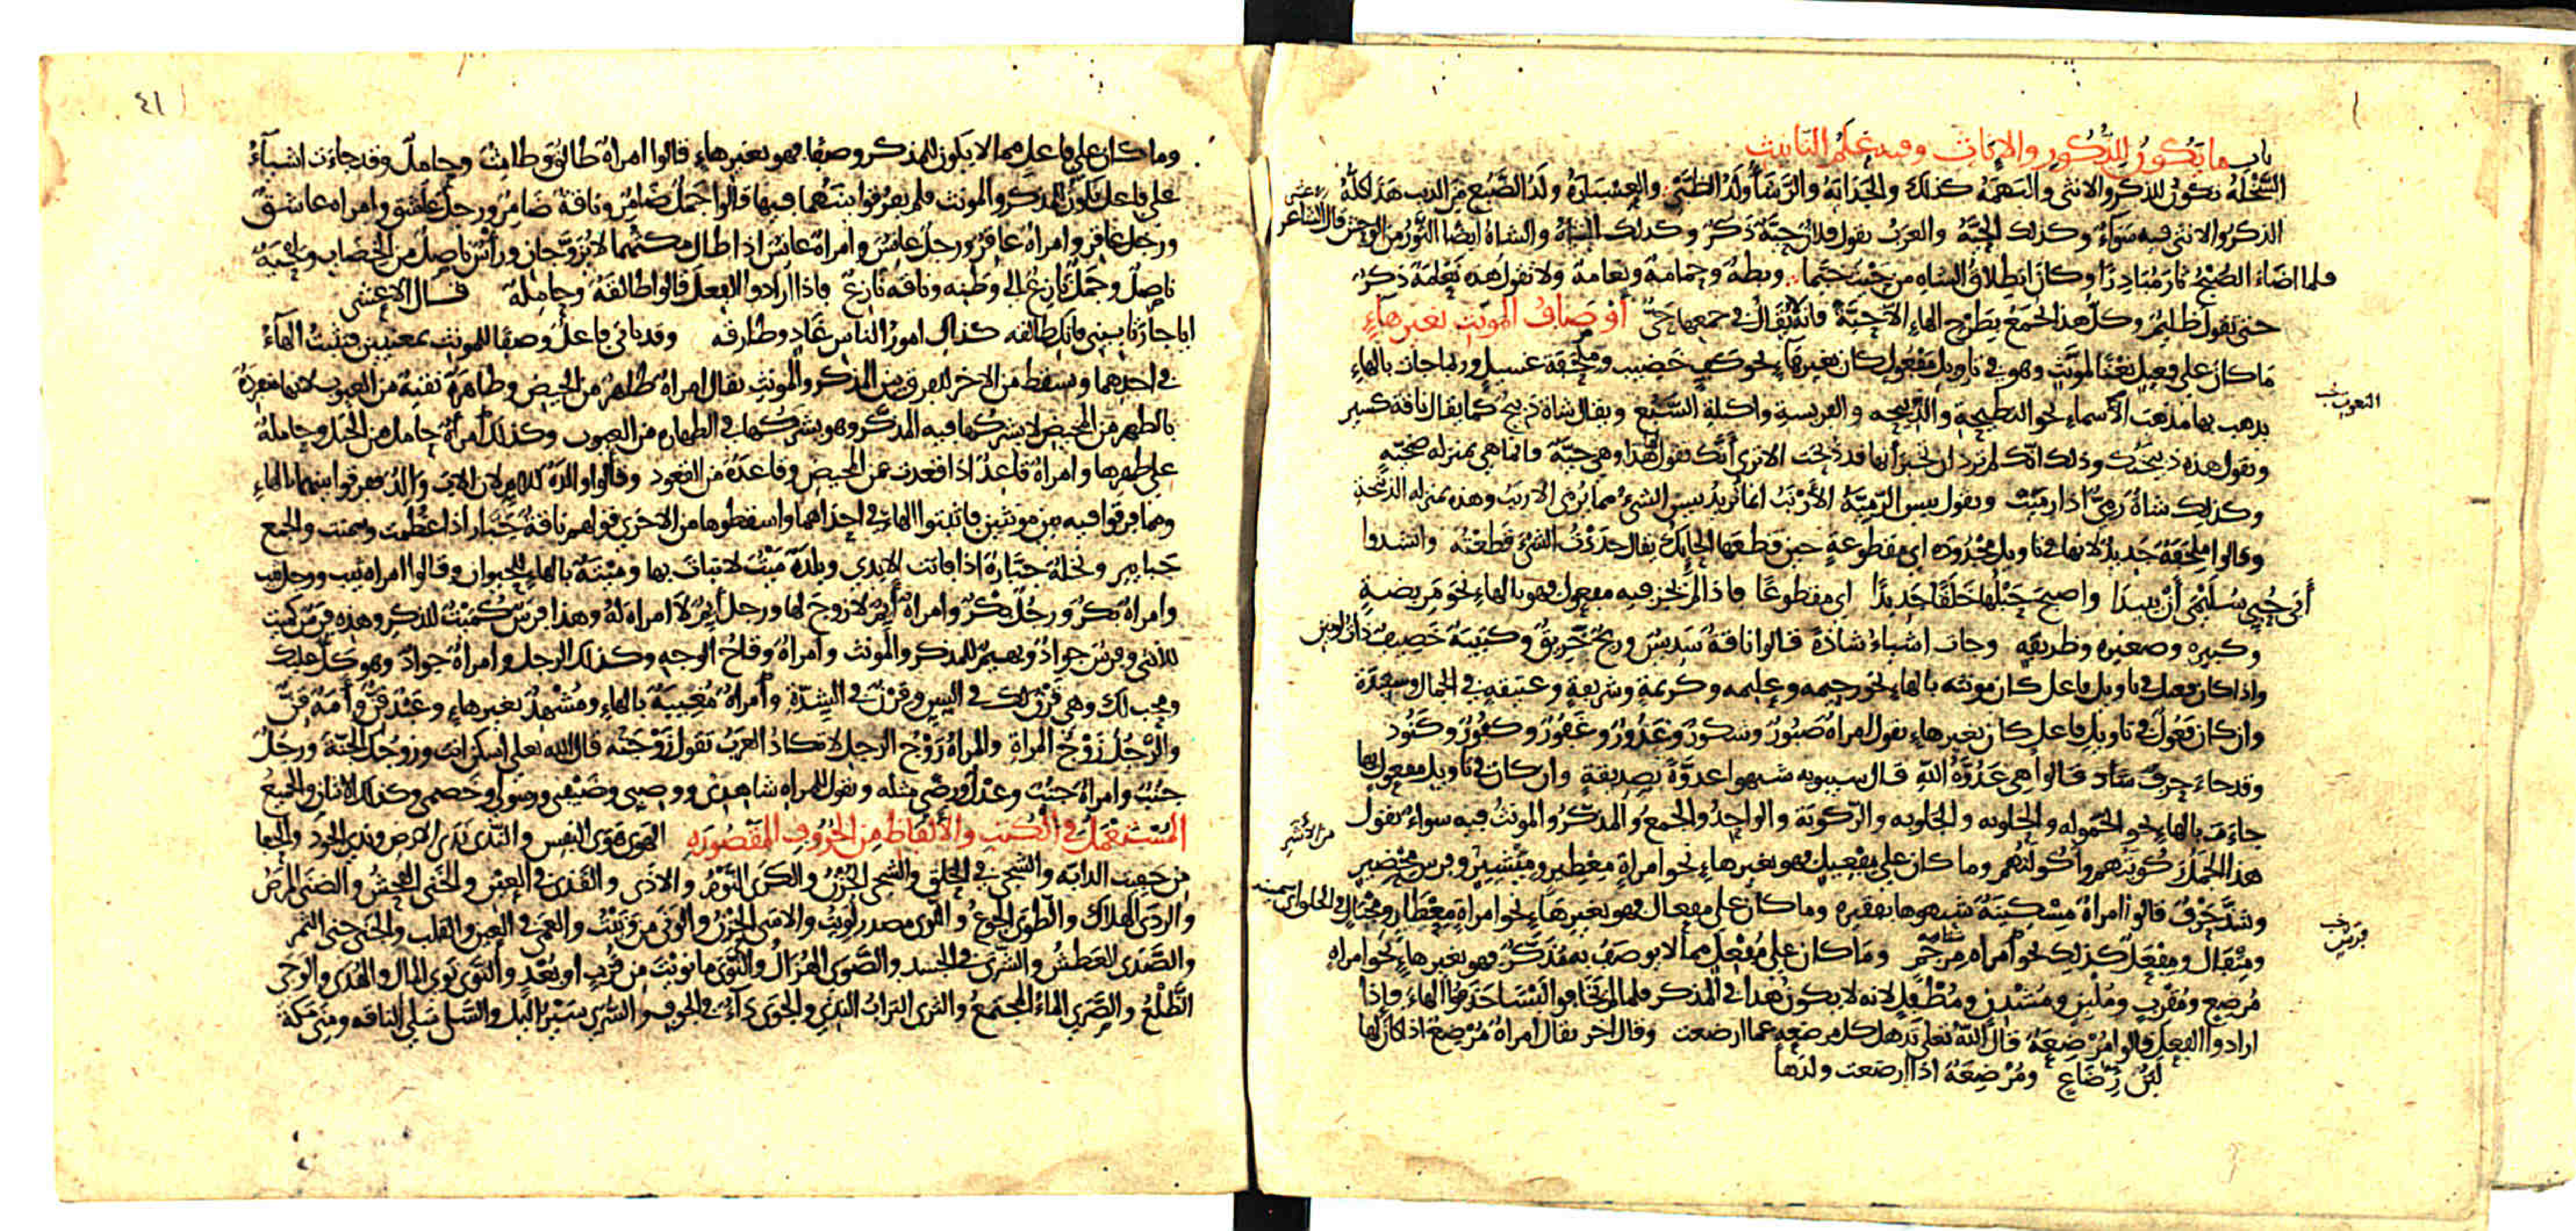 باب ما يكون للذكور والاناث وفيه علم التانيث
السخلة تكون للذكر والانثى والبهمة كذلك والجداية والرشأ ولد الظبى والعسبارة ولد الضبع من الذيب هذا كله
الذكر والانثى فيه سواء وكذلك الحية والعرب تقول فلان حية ذكر وكذلك الشاة والشاة ايضا الثور من الوحش قال الشاعر
الاعشى
فلما اضاء الصبح ثار مبادرا وكان انطلاق الشاه من حيث خيما وبطة وحمامة ونعامة ولا تقول هذه نعامة ذكر
حتى تقول ظليم وكل هذا الجمع بطرح الهاء الا حية فانه لا يقال في جمعها حى اوصاف المونث بغير هاء
ما كان على فعيل نعتا لمونث وهو في تاويل مفعول كان بغير هاء نحو كف خضيب وملحفة غسيل وربما جات بالهاء
يذهب بها مذهب الاسماء نحو النطيحة والذبيحه والفريسة واكيلة السبع ويقال شاة ذبيح كما يقال ناقة كسير
وتقول هذه ذبيحتك وذلك انك لم ترد ان تخبر انها قد ذبحت الا ترى انك تقول هذا وهي حية وانما هي بمنزله ضحية
وكذلك شاة رمي اذا رميت وتقول بيس الرمية الارنب انما تريد بيس الشيء مما يرمى الارنب وهذه بمنزله الذبيحة
وقالوا ملحفة جديد لانها في تاويل مجدودة اي مقطوعة حين قطعها الحايك يقال جددت الشيء قطعته وانشدوا
أبى حبي سليمى أن يبيدا واصبح حبلها خلقا جديدا اي مقطوعا فاذا لم يجز فيه مفعول فهو بالهاء نحو مريضة
وكبيره وصغيره وظريفه وجات اشياء شاذة قالوا ناقة سديس وريح خريق وكتيبة خصيف ذات لونين
واذا كان فعيل في تاويل فاعل كان مونثه بالهاء نحو رحيمه وعليمه وكريمة وشريفة وعتيقة في الجمال وسعيدة
وان كان فعول في تاويل فاعل كان بغير هاء تقول امراة صبور وشكور وغدور وغفور وكفور وكنود
وقد جاء حرف شاذ قالوا هي عدوة الله قال سيبويه شبهوا عدوة بصديقة وان كان في تاويل مفعول بها
جاءت بالهاء نحو الحموله والحلوبه والركوبة والواحد والجمع والمذكر والمونث فيه سواء تقول
هذا الجمل ركوبتهم واكولتهم وما كان على مفعيل فهو بغير هاء نحو امراة معطير ومئشير وفرس محضير
من الأشر
وشذ حرف قالوا امراة مسكينة شبهوها بفقيره وما كان على مفعال فهو بغير هاء نحو امراة معطار
ومتفال ومفعل كذلك نحو امراه مرجم وما كان على مفعل مما لا يوصف به مذكر فهو بغير هاء نحو امراة
مرضع ومقرب وملبن ومشدن ومطفل لانه لا يكون هذا في المذكر فلما لم يخافوا لبسا حذفوا الهاء فاذا
ارادوا الفعل قالوا مرضعة قال الله تعلى تذهل كل مرضعة عما ارضعت وقال اخر يقال امراة مرضع اذا كان لها
لبن رضاع ومرضعة اذا ارضعت ولدها
٤١
وما كان على فاعل مما لا يكون للمذكر وصفا فهو بغير هاء قالوا امراة طالق وطامث وحامل وقد جاءت اشياء
على فاعل تكون للمذكر والمونث فلم يفرقوا بينهما فيها قالوا جمل ضامر وناقة ضامر ورجل عاشق وامراه عاشق
ورجل عاقر وامراة عاقر ورجل عانس وامراة عانس اذا طال مكثهما لا يزوجان وراس ناصل من الخضاب ولحية
ناصل وجمل نازع الى وطنه وناقه نازع فاذا ارادوا الفعل قالوا طالقة وحاملة قال الاعشى
ايا جارتا بيني فانك طالقه كذاك امور الناس غاد وطارقه وقد ياتي فاعل وصفا للمونث بمعنيين فتثبت الهاء
في احدهما وتسقط من الاخر للفرق بين المذكر والمونث يقال امراة طاهر من الحيض وطاهرة نقية من العيوب لانها منفردة
بالطهر من المحيض لا يشركها فيه المذكر وهو يشركها في الطهارة من العيوب وكذلك امراة حامل من الحبل وحاملة
على ظهرها وامراة قاعد اذا قعدت عن المحيض وقاعدة من القعود وقالوا والدة للام لان الاب والد ففرقوا بينهما بالهاء
ومما فرقوا فيه بين مونثين فاثبتوا الهاء في احداهما واسقطوها من الاخرى قولهم ناقة جبار اذا عظمت وسمنت والجمع
جبابير ونخلة جبارة اذا فاتت الايدى وبلدة ميت لا نبات بها وميتة بالهاء للحيوان وقالوا امراه ثيب ورجل ثيب
وامراة بكر ورجل بكر وامراة ايم لا زوج لها ورجل ايم لا امراة له وهذا فرس كميت للذكر وهذه فرس كميت
للانثى وفرس جواد وبهيم للمذكر والمونث وامراة وقاح الوجه وكذلك الرجل وامراة جواد وهو كل عليك
ومحب لك وهي قرن لك في السن وقرن في الشدة وامراة مغيبة بالهاء ومشهد بغير هاء وعبد قن وأمة قن
والرجل زوج المراة والمراة زوج الرجل لا تكاد العرب تقول زوجته قال الله تعلى اسكن انت وزوجك الجنة ورجل
جنب وامراة جنب وعدل ورضى مثله وتقول للمراه شاهدي ووصيي وضيفي ورسولي وخصمي وكذلك الاثنان والجميع
المستعمل في الكتب والالفاظ من الحروف المقصوره الهوى هوى النفس والندى ندى الارض وندى الجود والحفا
من حفيت الدابه والشجى في الحلق والشجى الحزن والكرى النوم والاذى والقذى في العين والخنى الفحش والضنى المرض
والردى الهلاك والطوى الجوع والتوى مصدر لويت والاسى الحزن والونى من ونيت والعمى في العين والقلب والجنى جنى الثمر
والصدى العطش والشرى في الجسد والضوى الهزال والنوى ما نويت من قرب او بعد والتوى توى المال والهدى والوحى
الظلع والصرى الماء المجتمع والثرى التراب الندي والجوى داء في الجوف والسرى سير الليل والسلى سلى الناقه ومنى مكة